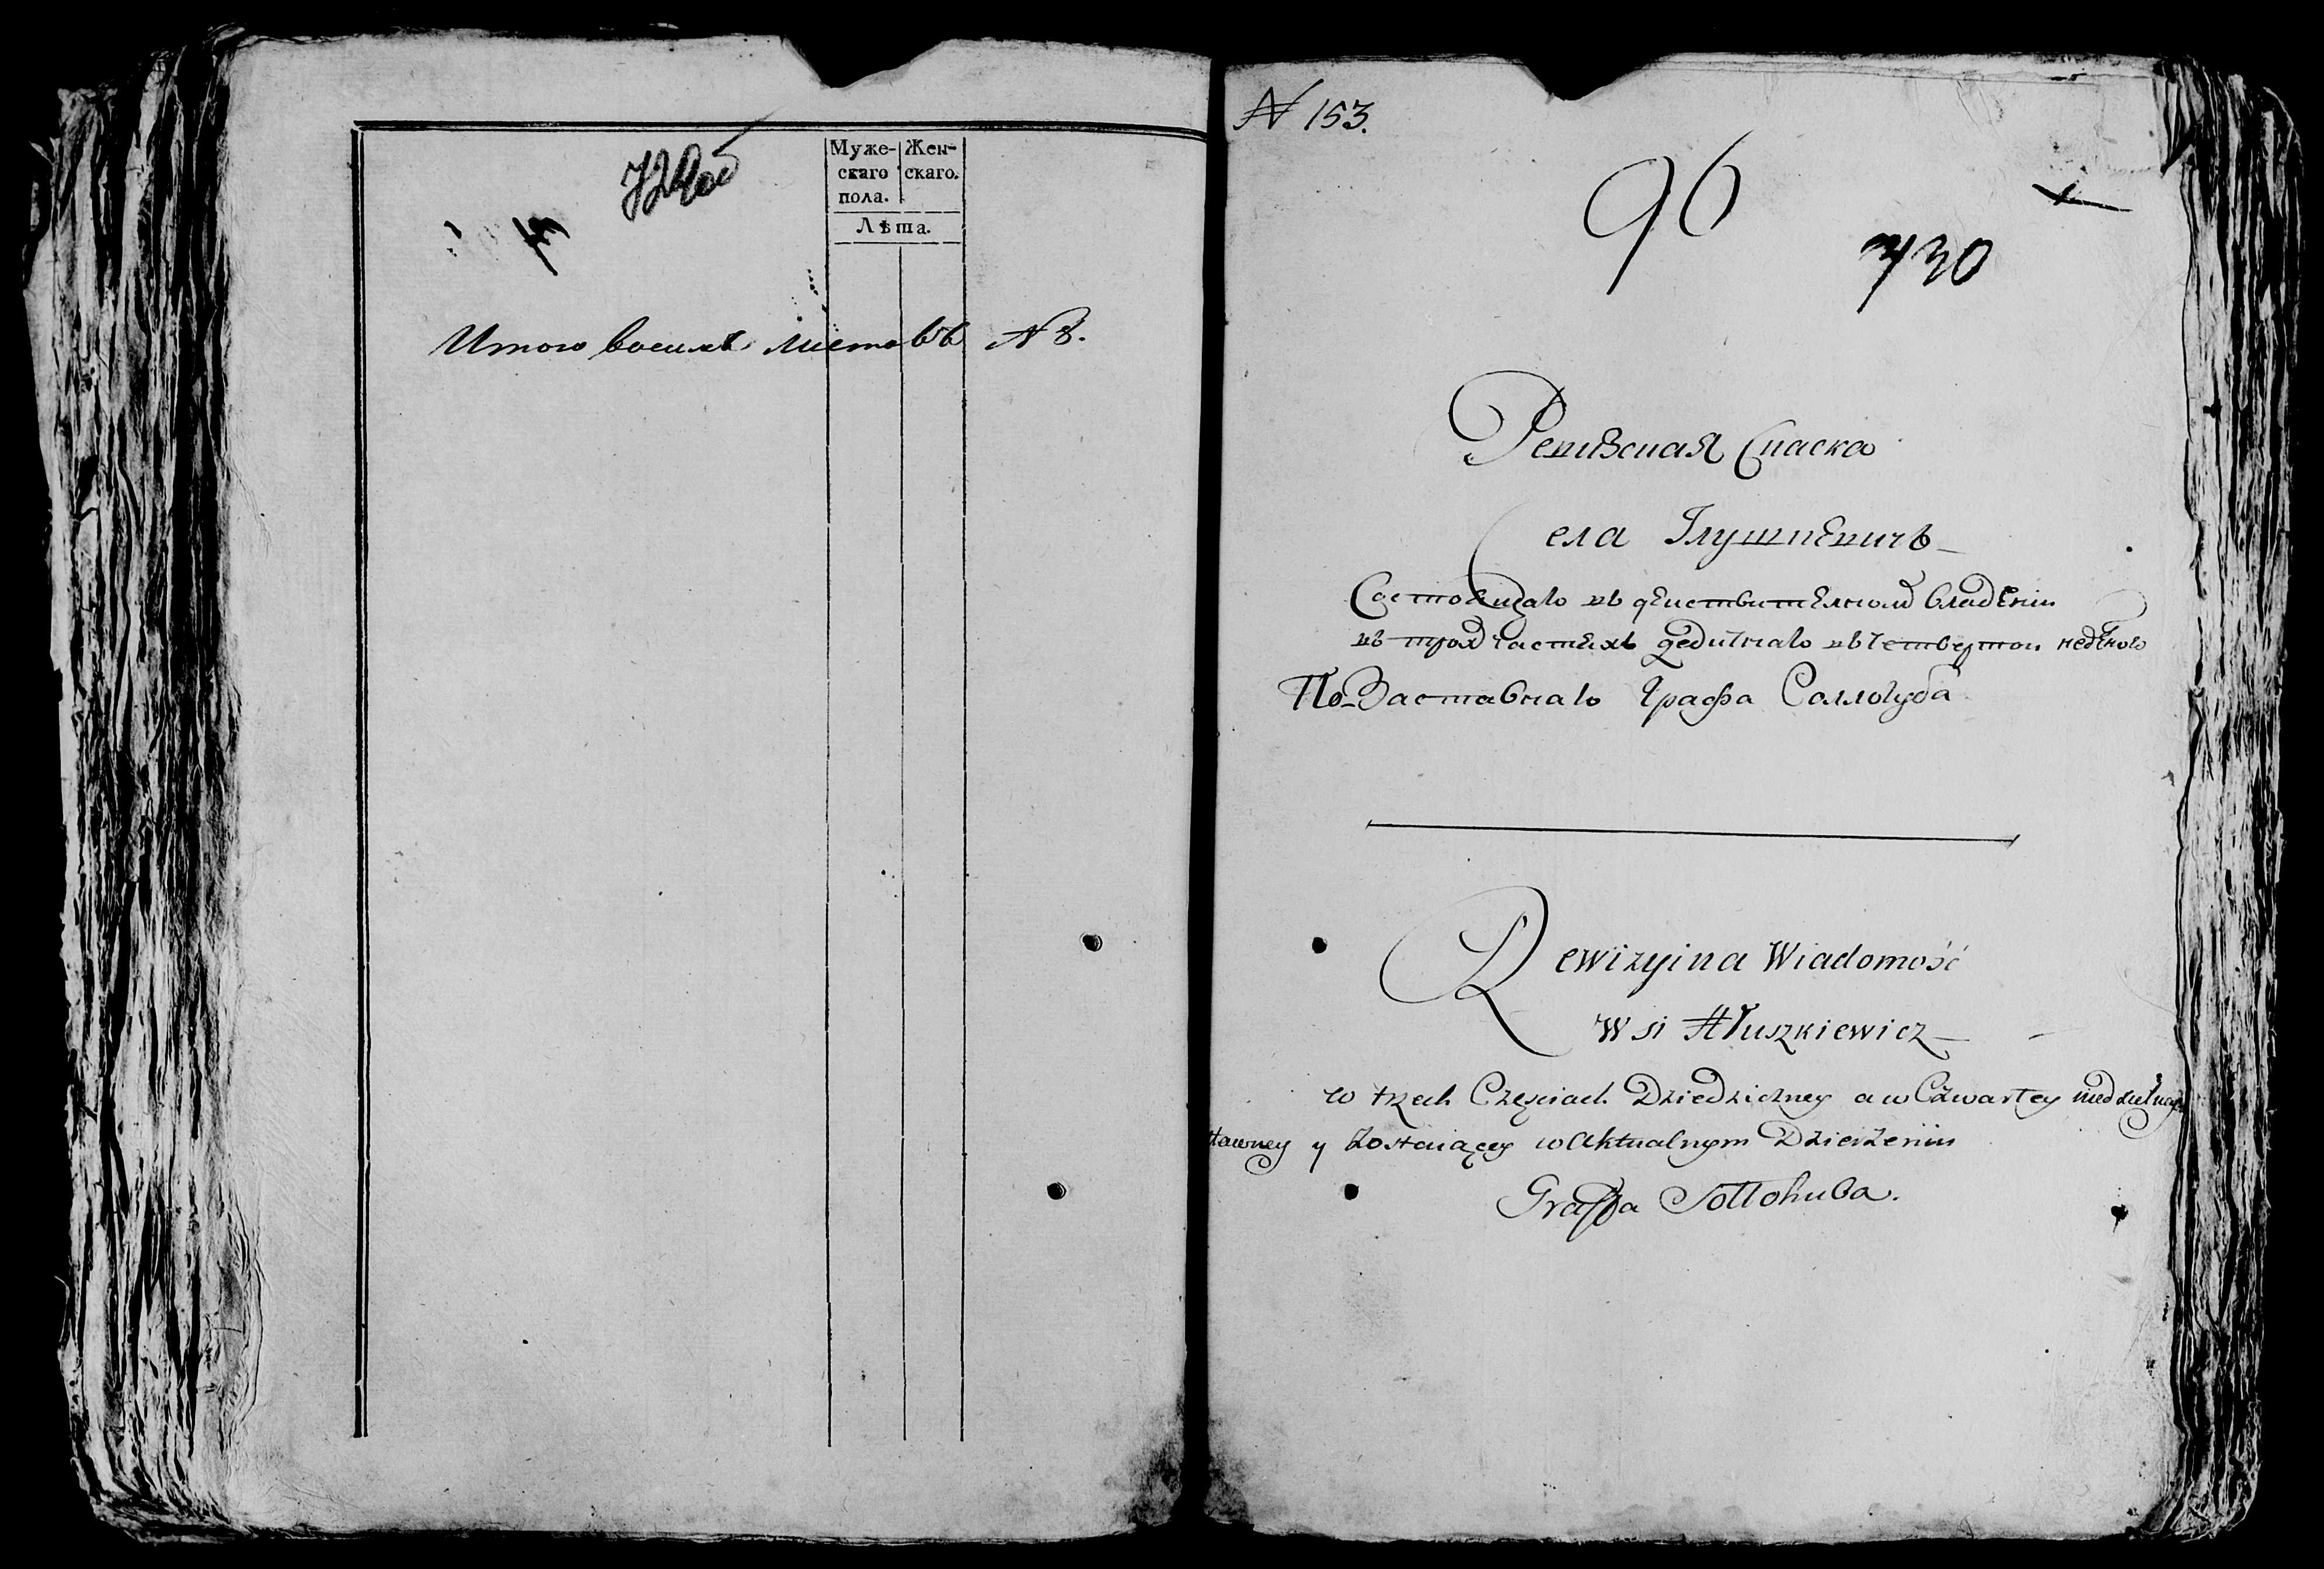 729об
Муже-
скаго
пола.
Жен-
скаго.
Лѣта.
Итого восемь листовъ N 8.
N 153.
96
730
Ревизская Скаска
Села Глушкевичъ
Состоящаго въ действителномъ владении
въ трох частяхъ дедичнаго въ четвертои недѣлного
По-Заставнаго Графа Соллогуба
Rewizyina Wiadomość
Wsi Hłuszkiewicz
w trzech Częsciach Dziedziczney a w Czwartey
tawney y Zostaiącey w Aktualnym Dzierżeniu
Graffa Sołłohuba.